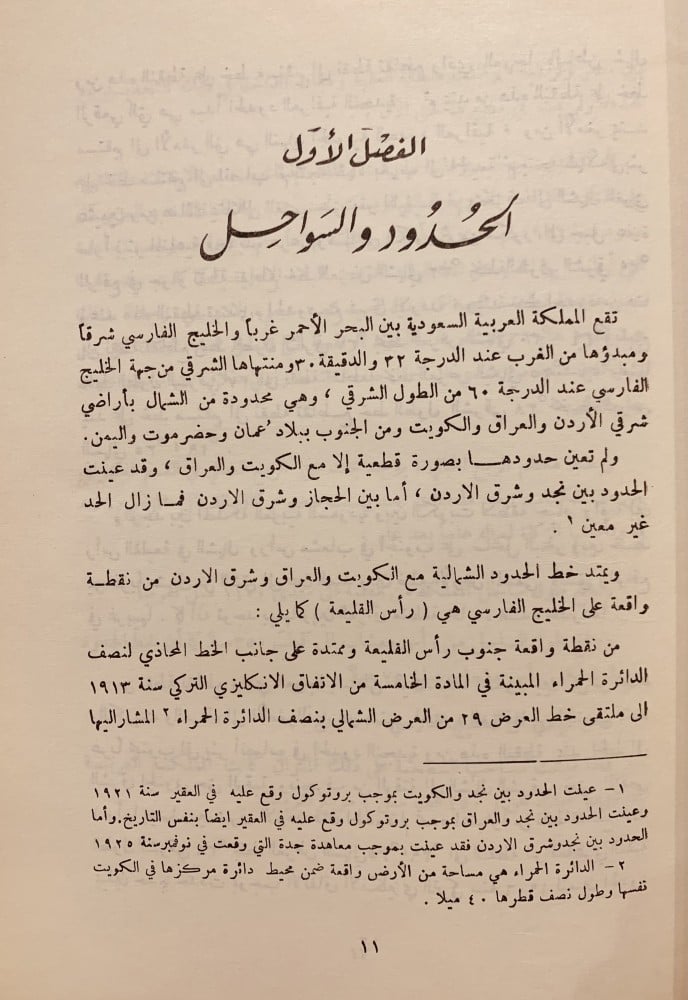 الفصل الأول
الحدود والسواحل
تقع المملكة العربية السعودية بين البحر الأحمر غرباً والخليج الفارسي شرقاً
ومبدؤها من الغرب عند الدرجة ٣٢ والدقيقة ٣٠ ومنتهاها الشرقي من جهة الخليج
الفارسي عند الدرجة ٦٠ من الطول الشرقي ، وهي محدودة من الشمال بأراضي
شرقي الأردن والعراق والكويت ومن الجنوب ببلاد عُمان وحضرموت واليمن .
ولم تعين حدودهــا بصورة قطعية إلا مع الكويت والعراق ، وقد عينت
الحدود بين نجد وشرق الاردن ، أما بين الحجاز وشرق الاردن فمـا زال الحد
غير معين ١ .
ويمتد خط الحدود الشمالية مع الكويت والعراق وشرق الاردن من نقطـة
واقعة على الخليج الفارسي هي ( رأس القليعة ) كما يلي :
من نقطة واقعة جنوب رأس القليعة وممتدة على جانب الخط المحاذي لنصف
الدائرة الحمراء المبينة في المادة الخامسة من الاتفاق الانكليزي التركي سنة ١٩١٣
الى ملتقى خط العرض ٢٩ من العرض الشمالي بنصف الدائرة الحمراء ٢ المشار اليها
١ – عينت الحدود بين نجد والكويت بموجب بروتوكول وقع عليه في العقير سنة ١٩٢١
وعينت الحدود بين نجد والعراق بموجب بروتوكول وقع عليه في العقير ايضاً بنفس التاريخ. وأما
الحدود بين نجد وشرق الاردن فقد عينت بموجب معاهدة جدة التي وقعت في نوفمبر سنة ١٩٢٥
٢ – الدائرة الحمراء هي مساحة من الأرض واقعة ضمن محيط دائرة مركزها في الكويت
نفسها وطول نصف قطرها ٤٠ ميلا .
١١